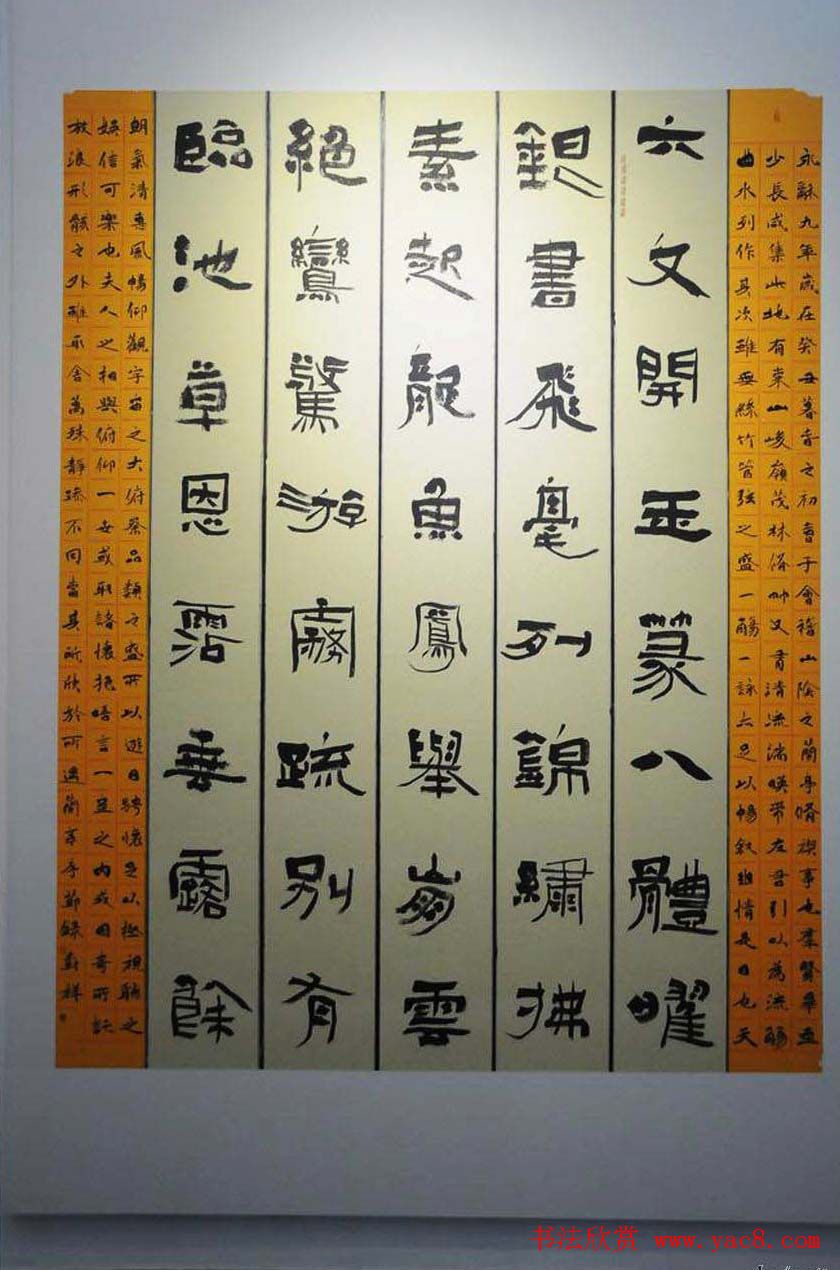 永龢九年歲在癸丑暮春之初會于會稽山陰之蘭亭脩禊事也羣賢畢至
少長咸集此地有崇山峻嶺茂林脩竹又有清流湍暎帶左右引以為流觴
曲水列作其次雖無絲竹管弦之盛一觴一詠亦足以暢敘幽情是日也天
六文開玉篆八體曜
銀書飛毫列錦繡拂
素起龍魚鳳舉崩雲
絕鸞驚游霧疏別有
臨池草恩霑垂露餘
朗氣清惠風暢仰觀宇宙之大俯察品類之盛所以遊目騁懷足以極視聽之
娛信可樂也夫人之相與俯仰一世或取諸懷抱晤言一室之內或因寄所託
放浪形骸之外雖取舍萬殊靜躁不同當其所欣於所遇蘭亭序節錄
书法欣赏 www.yac8.com